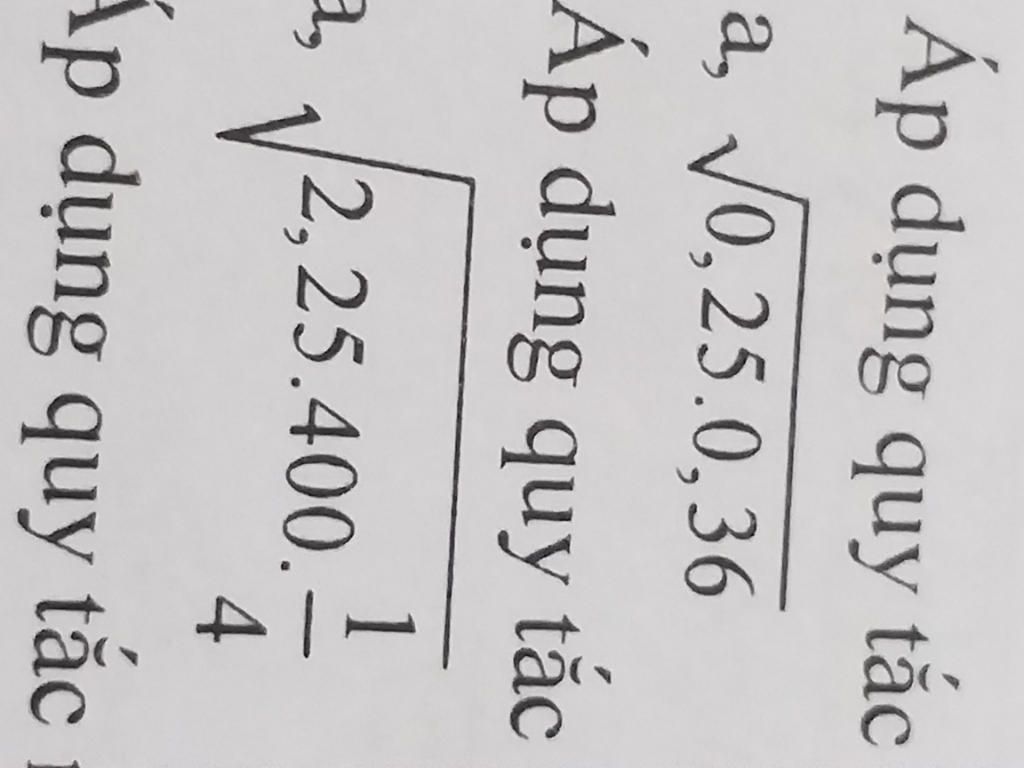 Áp dụng quy tắc
a, √0,25.0,36
Áp dụng quy tắc
a, √2,25.400.1/4
Áp dụng quy tắc